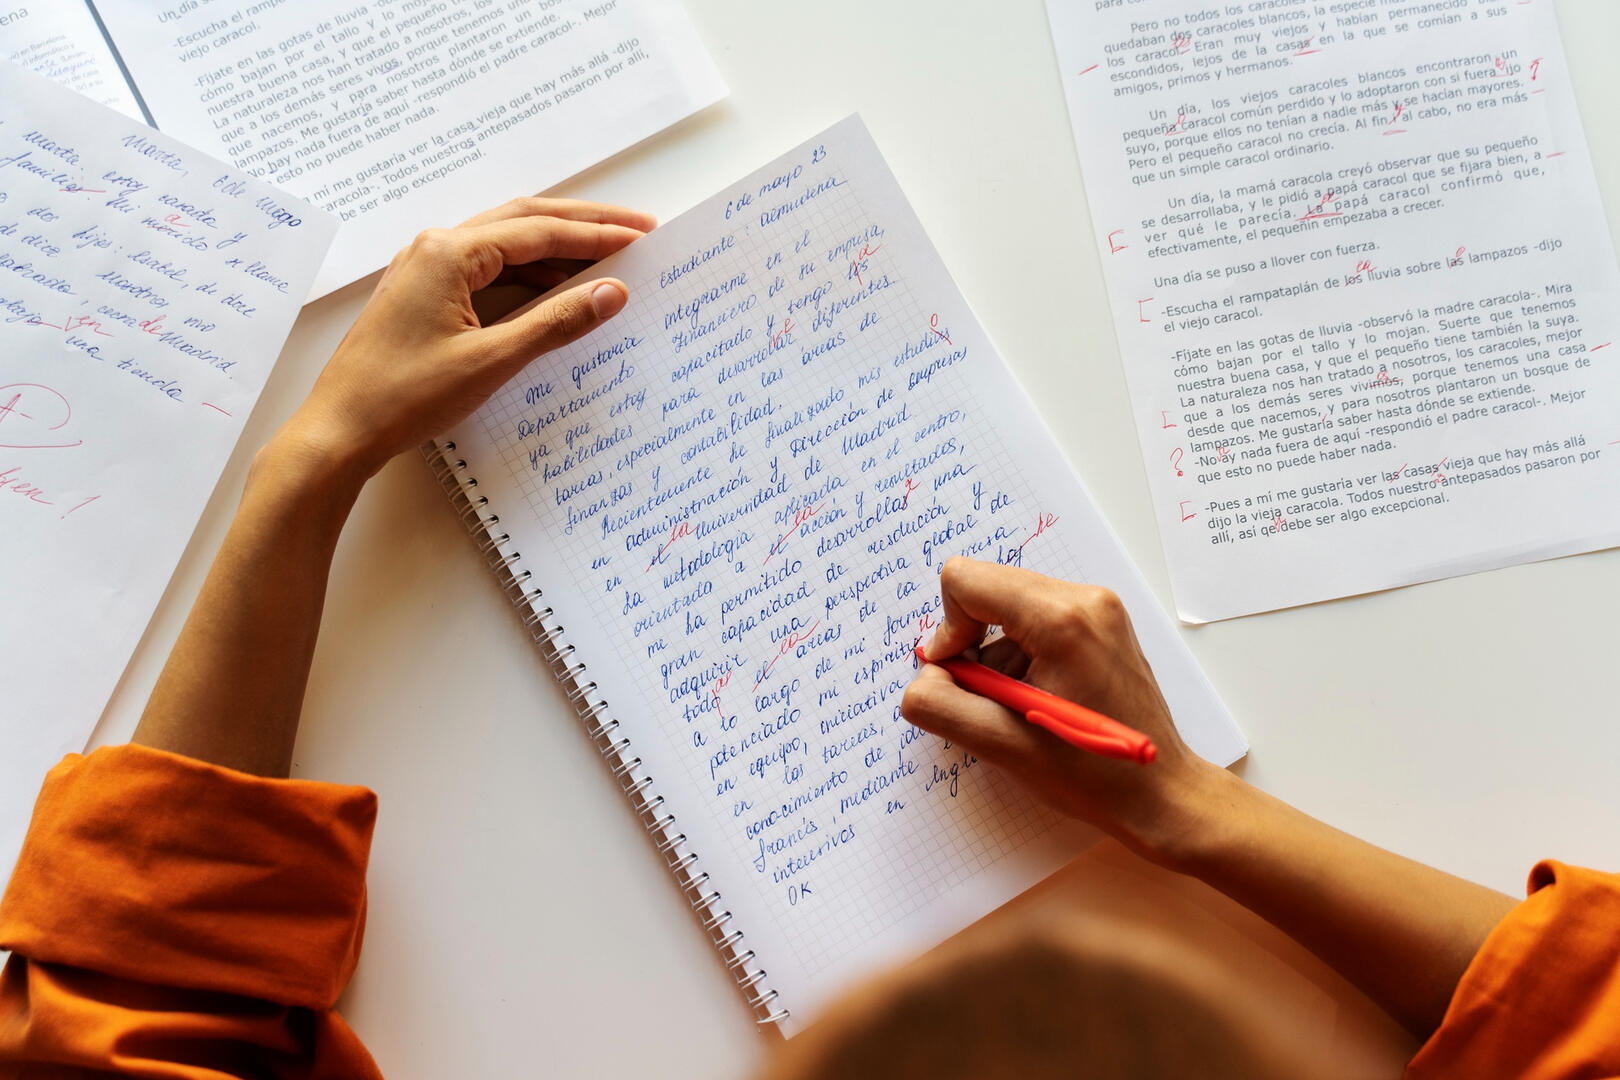 6 de mayo 23
Estudiante: Almudena
Me gustaría integrarme en el
Departamento Financiero de su empresa,
ya que estoy capacitado y tengo los
a
habilidades para desarrobar diferentes
ve
tareas, especialmente en las áreas de
finanzas y contabilidad.
Recientemente he finalizado mis estudios
o
en administración y Dirección de empresas
en el Universidad de Madrid.
la
La metodología aplicada en el centro,
orientada a el acción y resultados,
la
me ha permitido desarrollas una
r
gran capacidad de resolución y
adquirir una perspectiva global de
todo el áreas de la empresa. hoy
as la he
a lo largo de mi
potenciado mi espíritu
en equipo, iniciativa
en las tareas,
conocimiento de
francés, mediante
intensivos en
OK
Marta, 6 de mayo
marta: estoy casada y
familia. Mi marido se llama
a
dos hijos: Isabel, de doce
de diez. Nosotros
casa de Madrid.
en una tienda
A-
!
-Escucha el
viejo caracol.
-Fíjate en las gotas de lluvia
cómo bajan por el tallo y lo
nuestra buena casa, y que el pequeño
La naturaleza nos han tratado a nosotros, los
que a los demás seres vivos, porque tenemos una
nacemos, y para nosotros plantaron un
lampazos. Me gustaría saber hasta dónde se extiende.
No hay nada fuera de aquí -respondió el padre caracol-. Mejor
esto no puede haber nada.
mí me gustaría ver la casa vieja que hay más allá -dijo
caracola-. Todos nuestros antepasados pasaron por allí,
be ser algo excepcional.
Pero no todos los caracoles
quedaban dos caracoles blancos, la especie
los caracol. Eran muy viejos y habían permanecido
escondidos, lejos de la casas en la que se comían a sus
amigos, primos y hermanos.
Un día, los viejos caracoles blancos encontraron un
pequeña caracol común perdido y lo adoptaron con si fuera ijo
suyo, porque ellos no tenían a nadie más y se hacían mayores.
Pero el pequeño caracol no crecía. Al fin al cabo, no era más
que un simple caracol ordinario.
Un día, la mamá caracola creyó observar que su pequeño
se desarrollaba, y le pidió a papá caracol que se fijara bien, a
ver qué le parecía. La papá caracol confirmó que,
efectivamente, el pequeñín empezaba a crecer.
Una día se puso a llover con fuerza.
-Escucha el rampataplán de los lluvia sobre las lampazos -dijo
el viejo caracol.
-Fíjate en las gotas de lluvia -observó la madre caracola-. Mira
cómo bajan por el tallo y lo mojan. Suerte que tenemos
nuestra buena casa, y que el pequeño tiene también la suya.
La naturaleza nos han tratado a nosotros, los caracoles, mejor
que a los demás seres vivimos, porque tenemos una casa
desde que nacemos, y para nosotros plantaron un bosque de
lampazos. Me gustaría saber hasta dónde se extiende.
-Novay nada fuera de aquí -respondió el padre caracol-. Mejor
que esto no puede haber nada.
-Pues a mí me gustaría ver las casas vieja que hay más allá
dijo la vieja caracola. Todos nuestro antepasados pasaron por
allí, así qe debe ser algo excepcional.